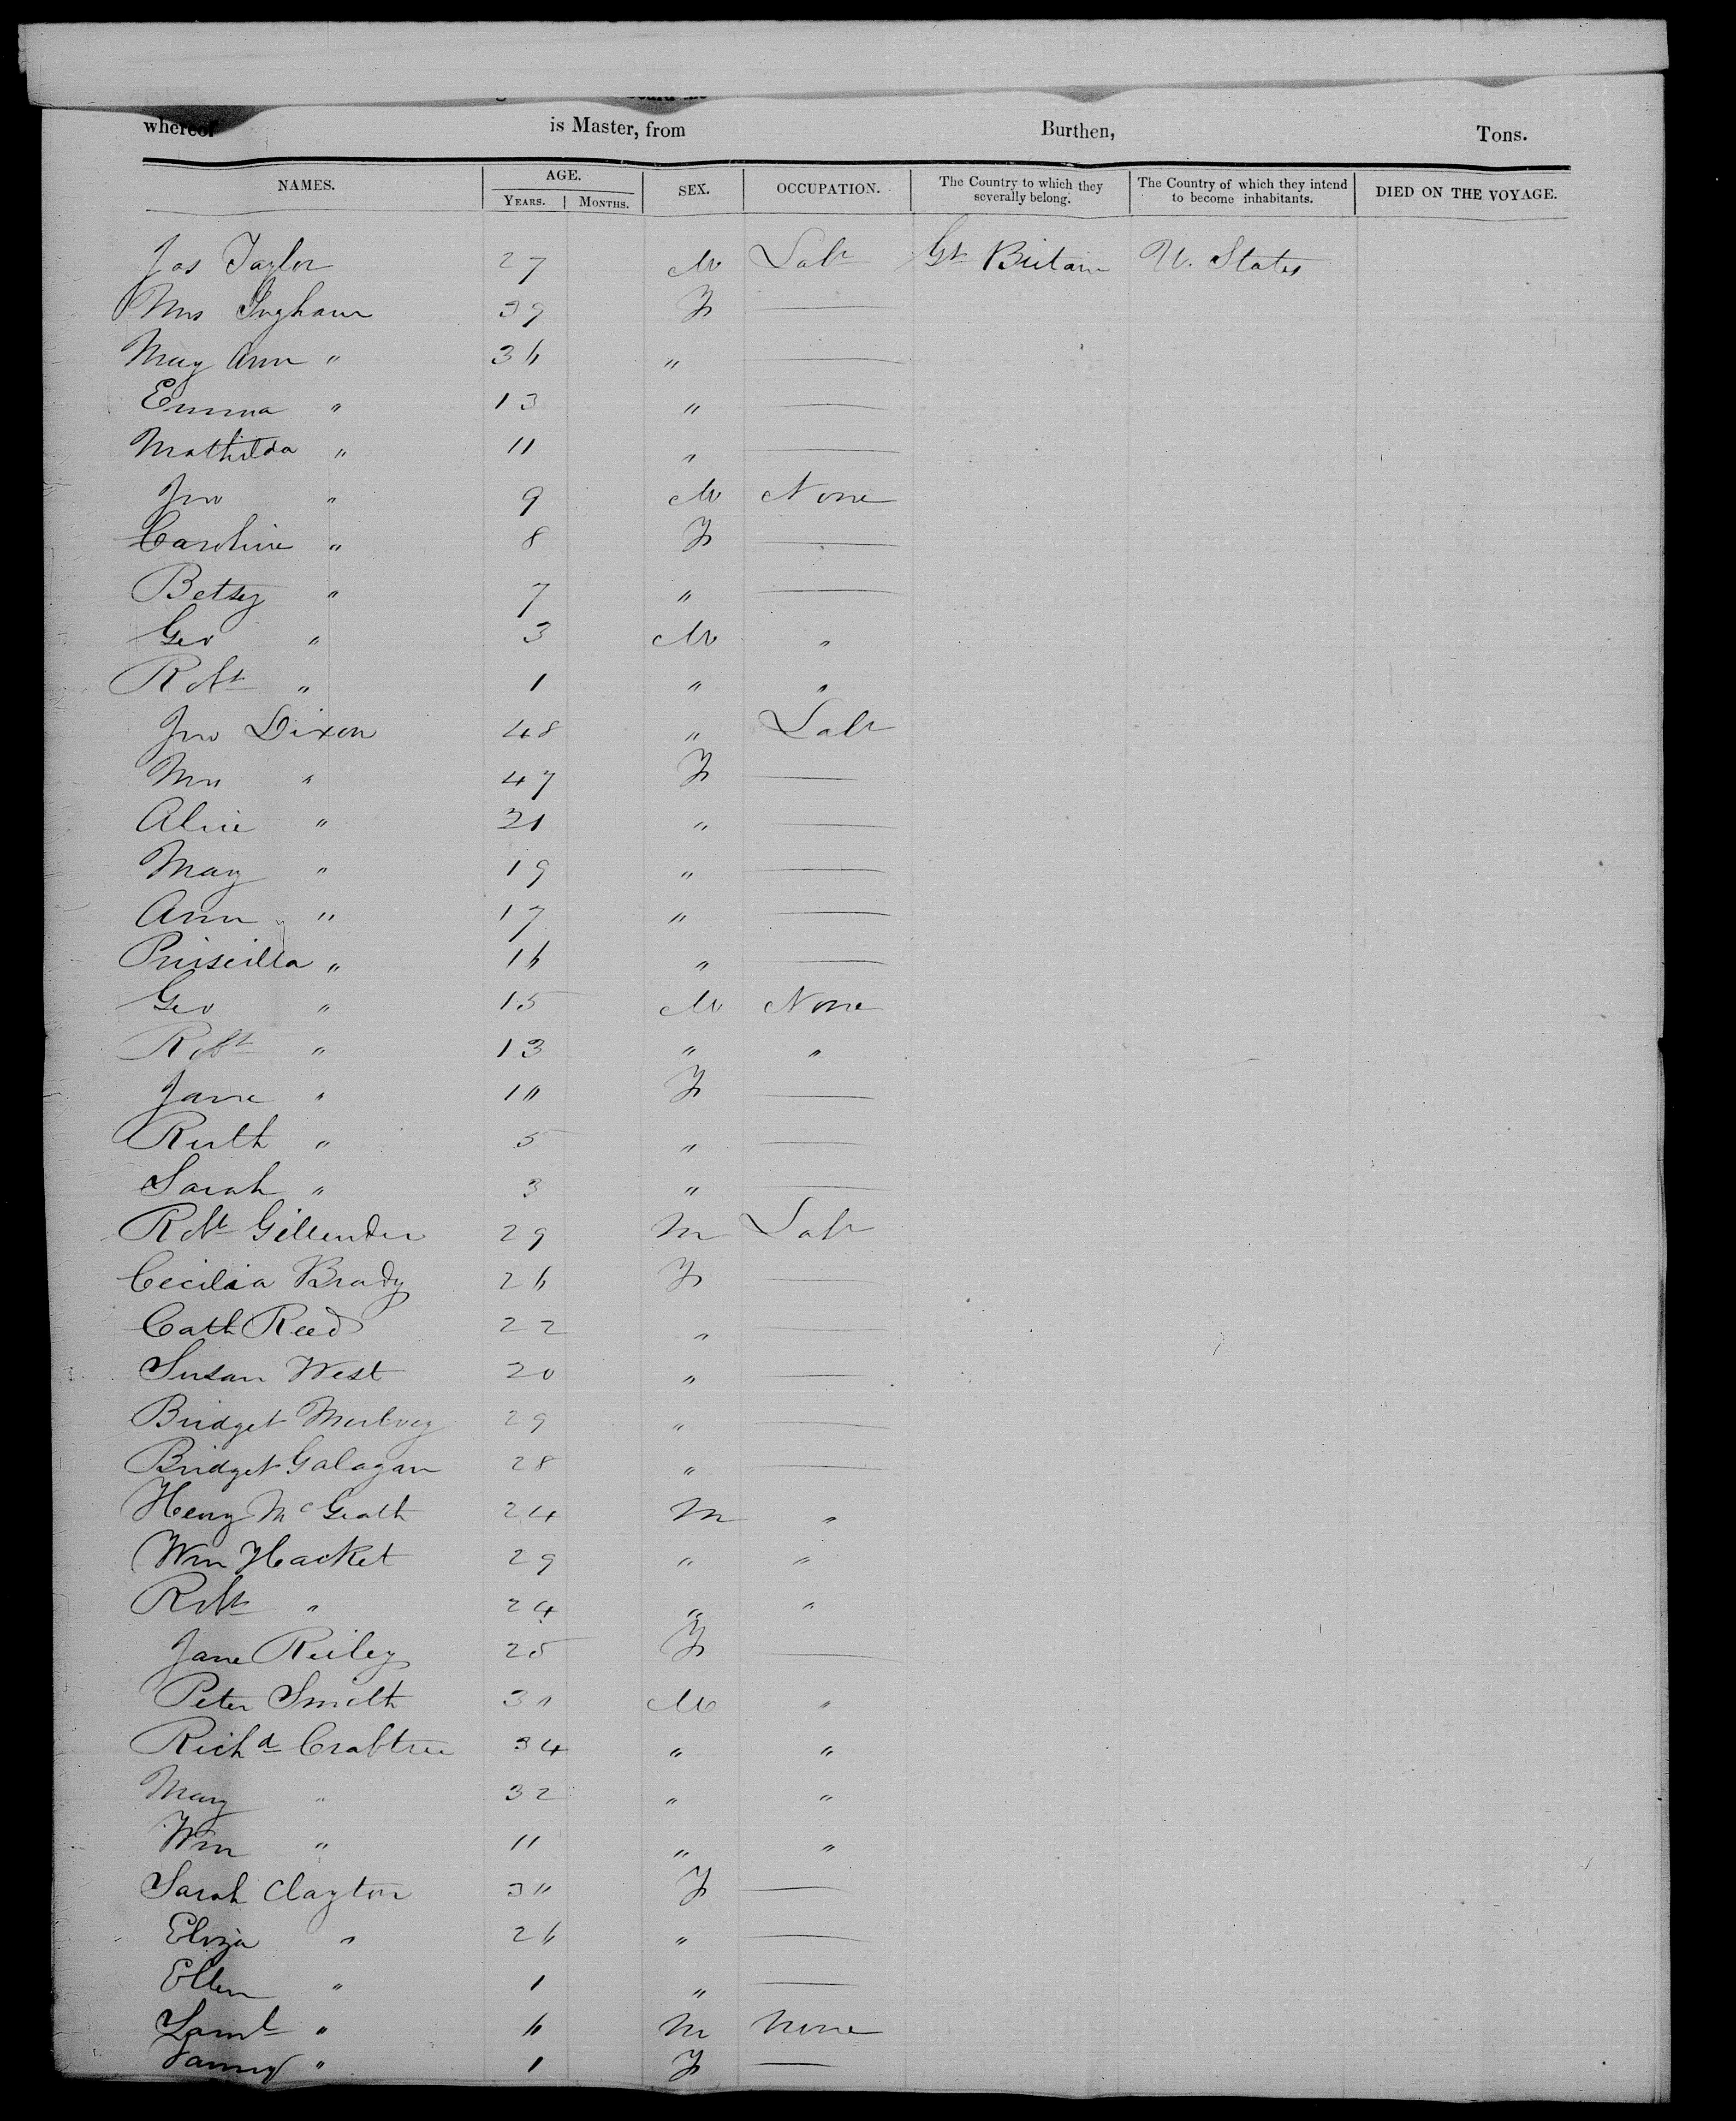 whereof is Master, from Burthen, Tons.
NAMES. AGE. YEARS. MONTHS. SEX. OCCUPATION. The Country to which they severally belong. The Country of which they intend to become inhabitants. DIED ON THE VOYAGE.
Jas Taylor 27 M Labr Gt Britain U. States
Mrs Ingham 39 F —
Mary Ann " 36 " —
Emma " 13 " —
Mathilda " 11 " —
Jno " 9 M None
Caroline " 8 F —
Betsey " 7 " —
Geo " 3 M "
Robt " 1 " "
Jno Dixon 48 " Labr
Mrs " 47 F —
Alice " 21 " —
Mary " 19 " —
Ann " 17 " —
Priscilla " 16 " —
Geo " 15 M None
Robt " 13 " "
Jane " 10 F —
Ruth " 5 " —
Sarah " 3 " —
Robt Gillender 29 M Labr
Cecilia Brady 26 F —
Cath Reed 22 " —
Susan West 20 " —
Bridget Mulvey 29 " —
Bridget Galagan 28 " —
Henry McGrath 24 M "
Wm Hacket 29 " "
Robt " 24 " "
Jane Reiley 25 F —
Peter Smith 30 M "
Richd Crabtree 34 " "
Mary " 32 " "
Wm " 11 " "
Sarah Clayton 30 F —
Eliza " 26 " —
Ellen " 1 " —
Saml " 6 M None
Fanny " 1 F —